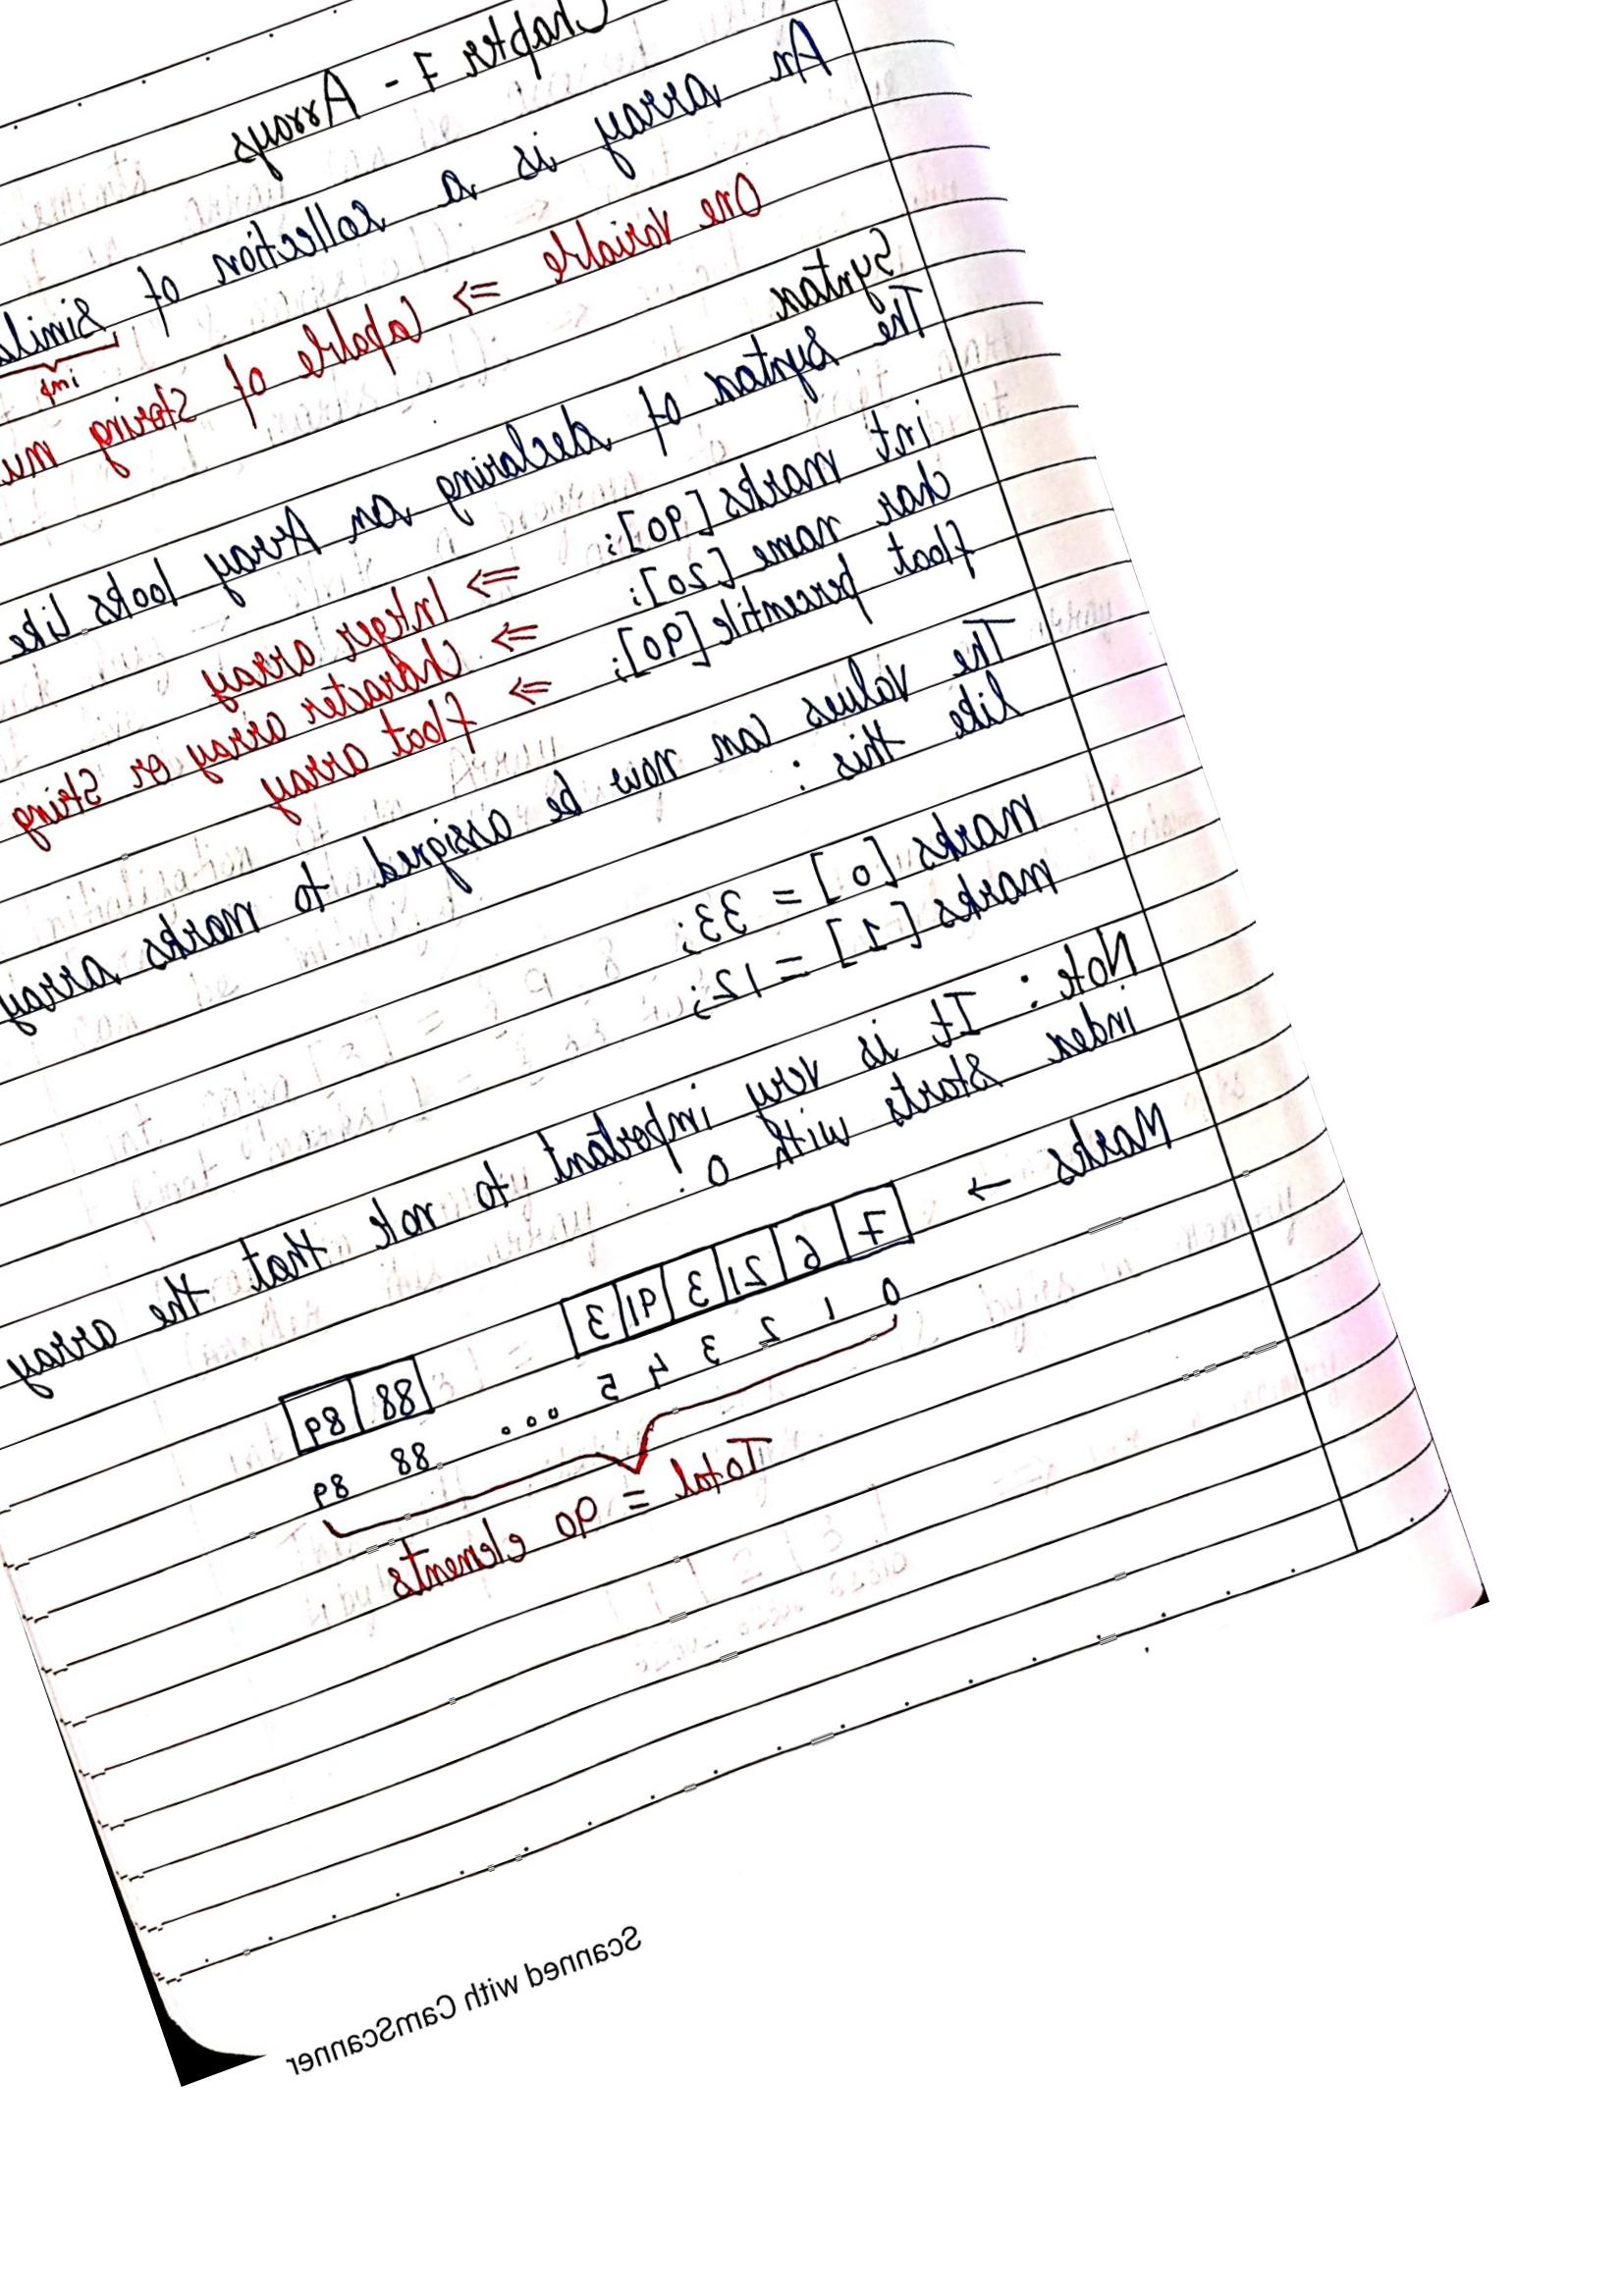 Chapter 7 - Arrays
An array is a collection of
imp
One variable => Capable of storing
Syntax
The syntax of declaring an Array looks like
int marks [90]; => Integer array
char name [20]; => Character array or string
float percentile [90]; => float array
The values can now be assigned to marks array
like this :
marks [0] = 33;
marks [1] = 12;
Note : It is very important to note that the array
index starts with 0!
Marks → 7 6 21 3 91 3 88 89
0 1 2 3 4 5 ... 88 89
Total = 90 elements
Scanned with CamScanner